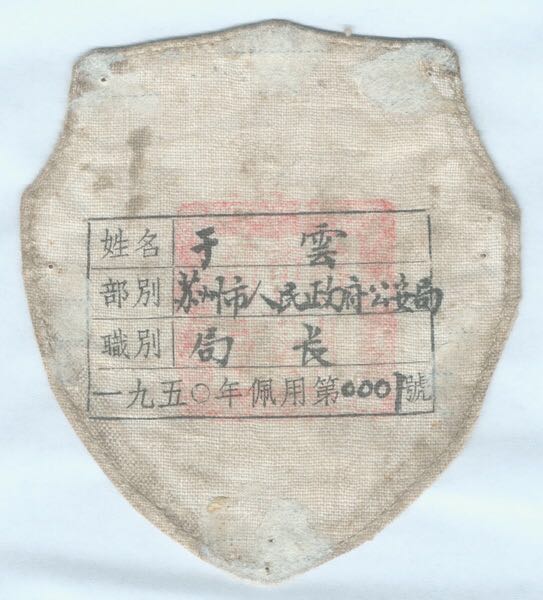 姓名 于雲
部別 苏州市人民政府公安局
職別 局长
一九五〇年佩用第0001號